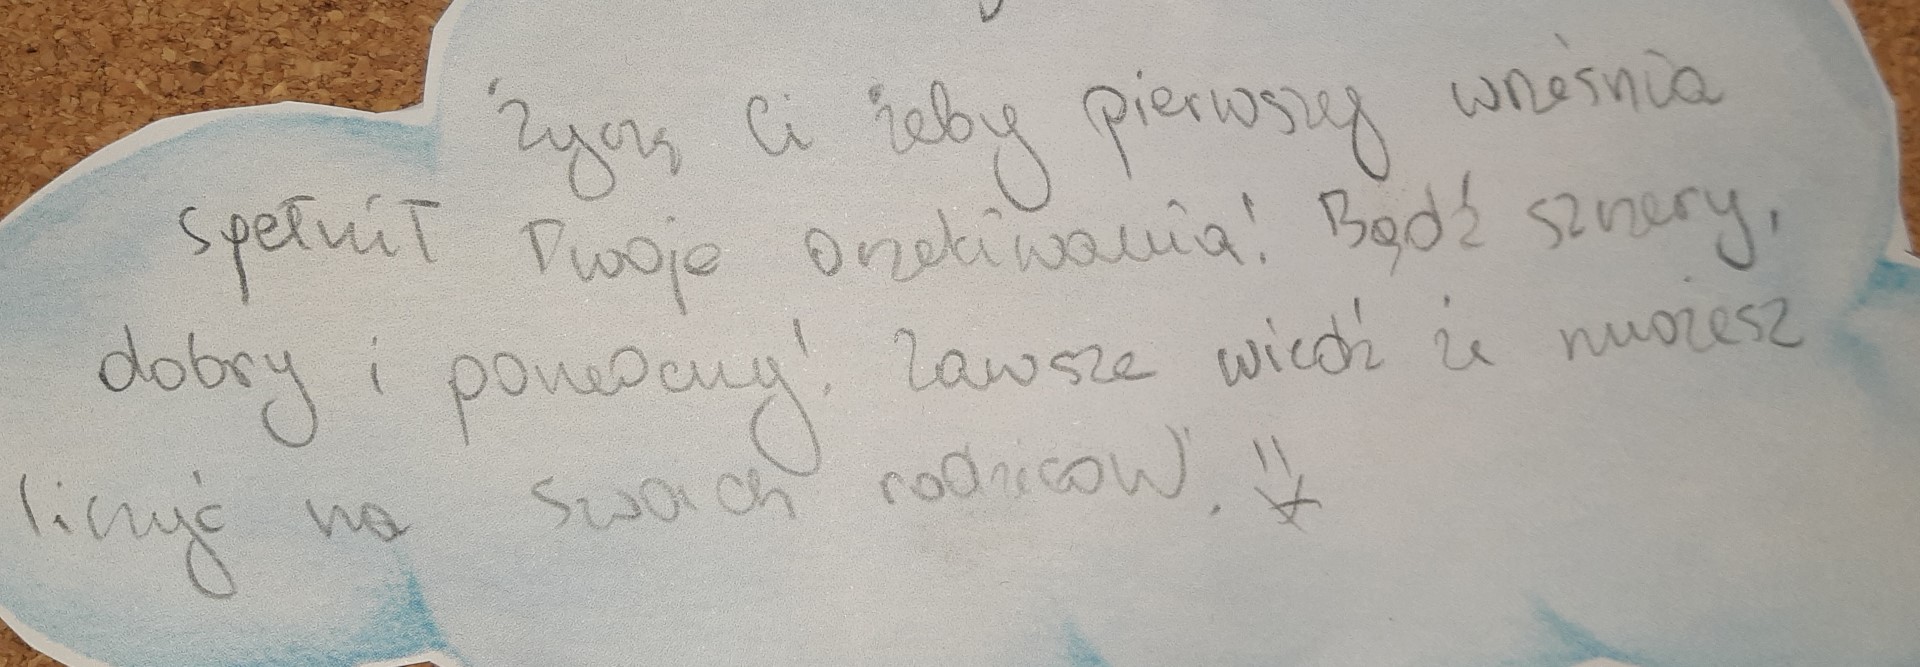 Życzę Ci żeby pierwszy września
spełnił Twoje oczekiwania! Bądź szczery,
dobry i pomocny! Zawsze wiedz że możesz
liczyć na swoich rodziców!